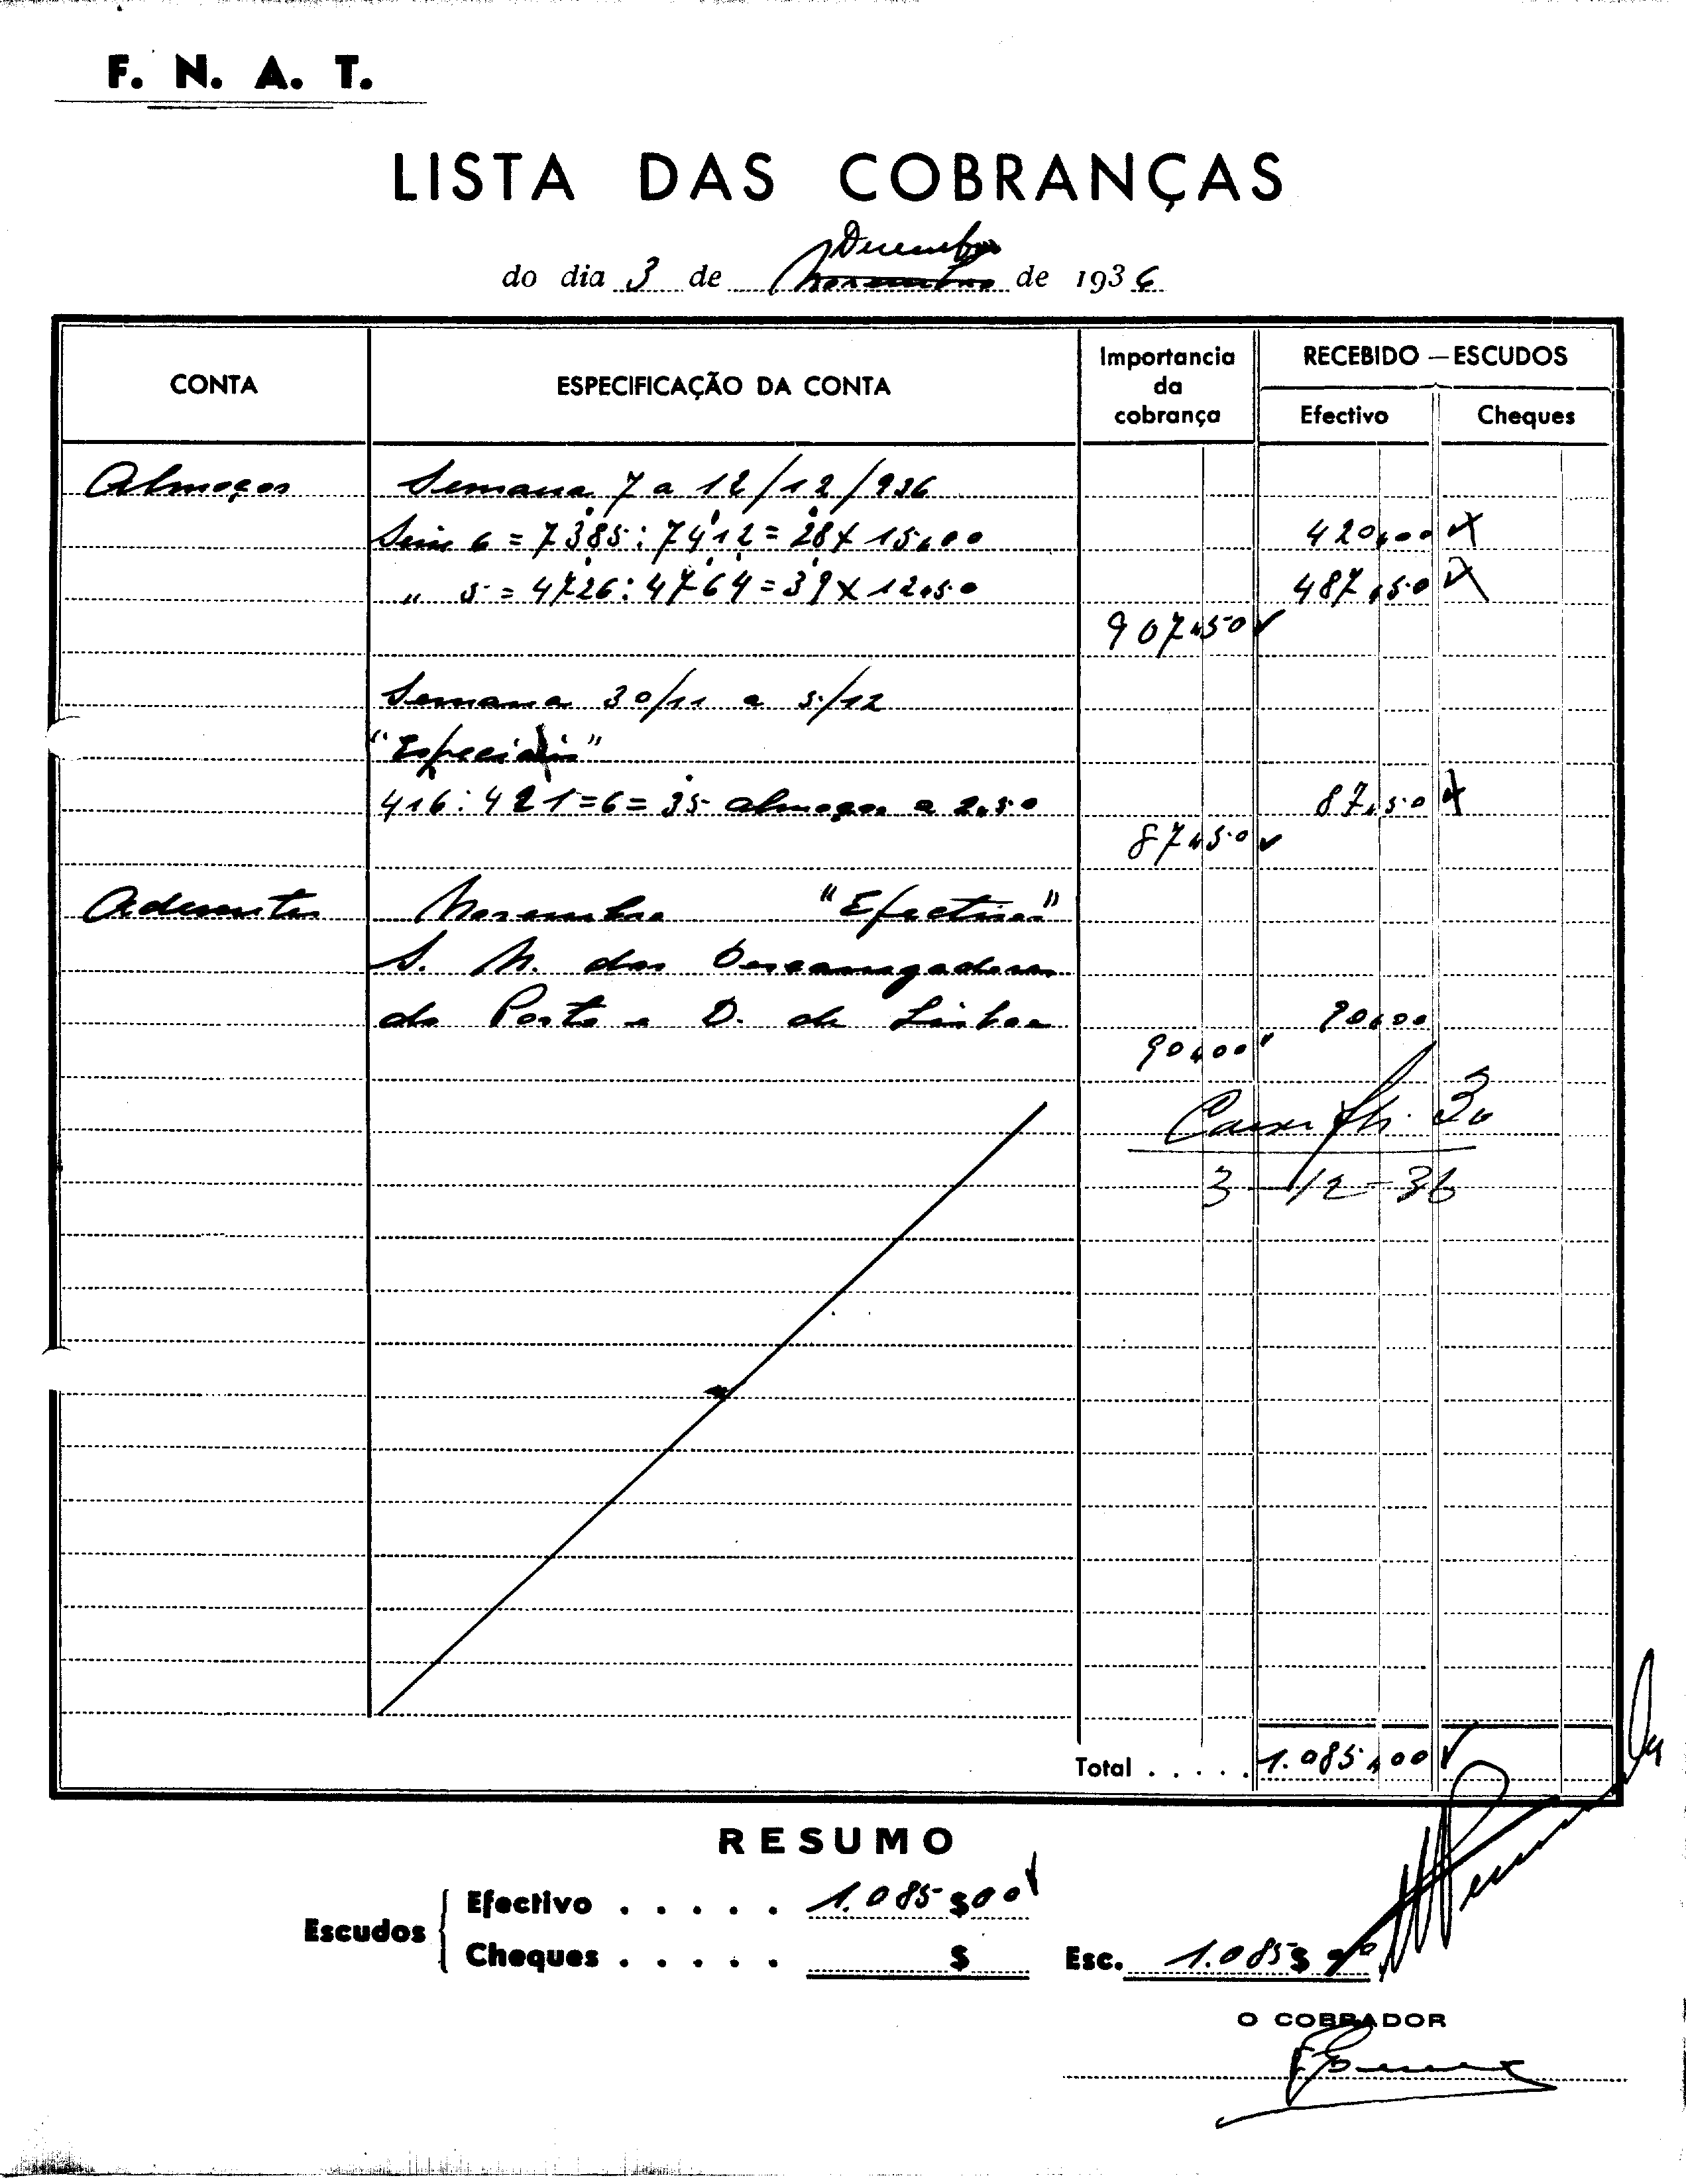 F. N. A. T.
LISTA DAS COBRANÇAS
Dezembro
do dia 3 de Novembro de 1936
CONTA
ESPECIFICAÇÃO DA CONTA
Importancia da cobrança
RECEBIDO — ESCUDOS
Efectivo
Cheques
Almoços Semana 7 a 12/12/936
Série 6 = 7385 : 7412 = 28 x 15$00 420$00
" 5 = 4726 : 4764 = 39 x 12$50 487$50
907$50
Semana 30/11 a 5/12
"Especiais"
416 : 421 = 6 = 35 almoços a 2$50 87$50
87$50
Aderentes Novembro "Efectivos"
S. N. dos Descarregadores
do Porto e D. de Lisboa 90$00
90$00
Caixa fls. 30
3-12-36
Total . . . . . 1.085$00
RESUMO
Escudos
Efectivo . . . . . 1.085$00
Cheques . . . . . $
Esc. 1.085$00
O COBRADOR